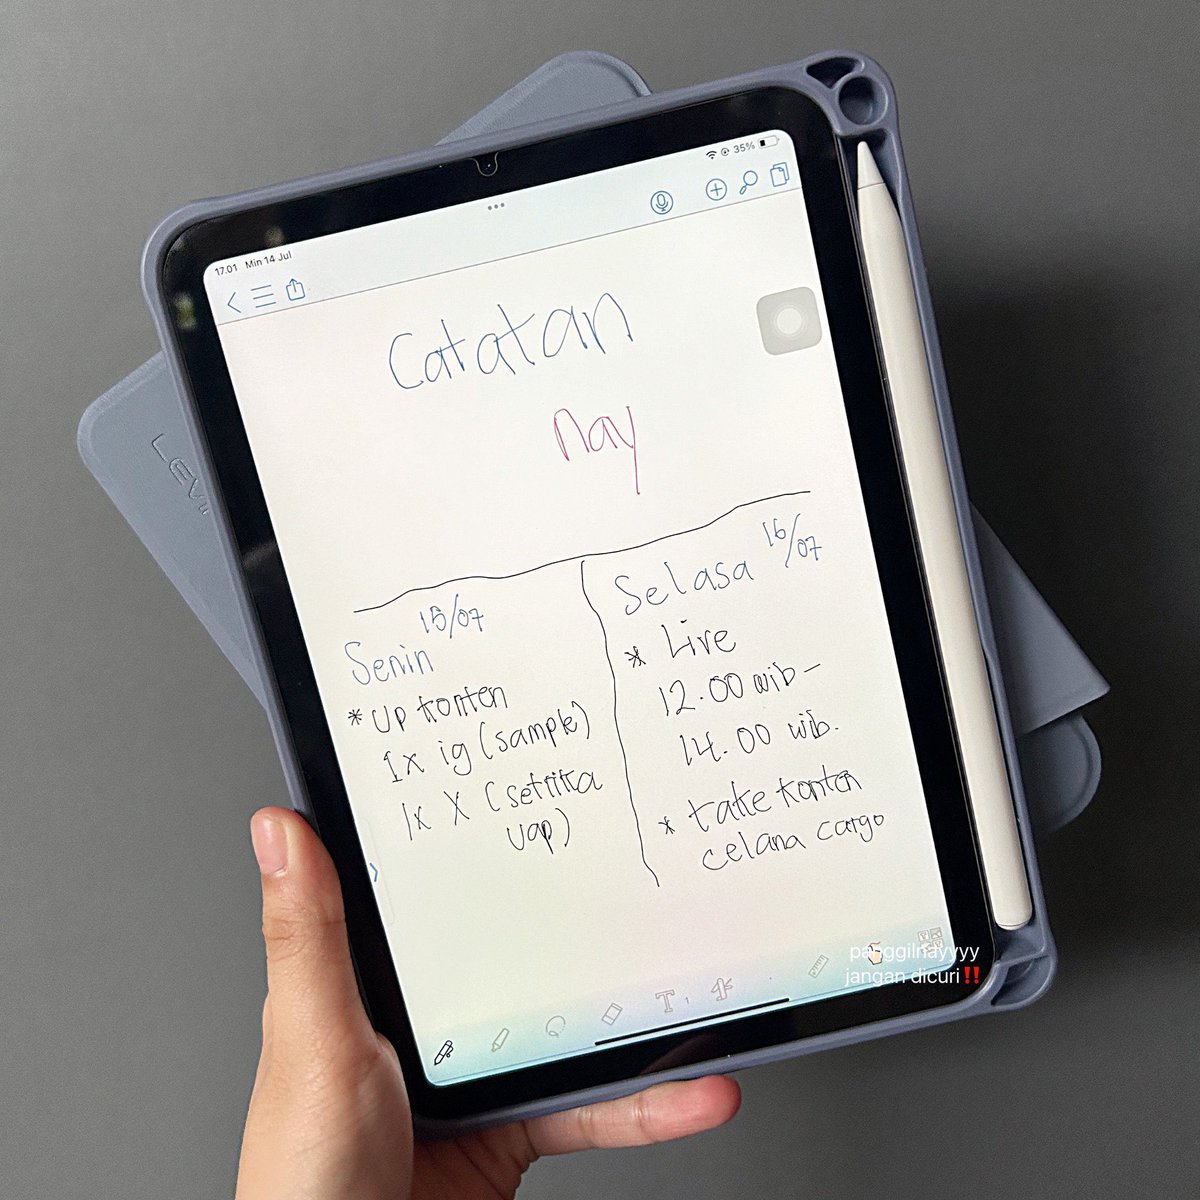 17.01 Min 14 Jul
35%
Catatan
nay
15/07
Senin
* up konten
1x ig (sample)
1x X (setrika
uap)
16/07
Selasa
* Live
12.00 wib -
14.00 wib.
* take konten
celana cargo
T
panggilnayyyy
jangan dicuri‼️